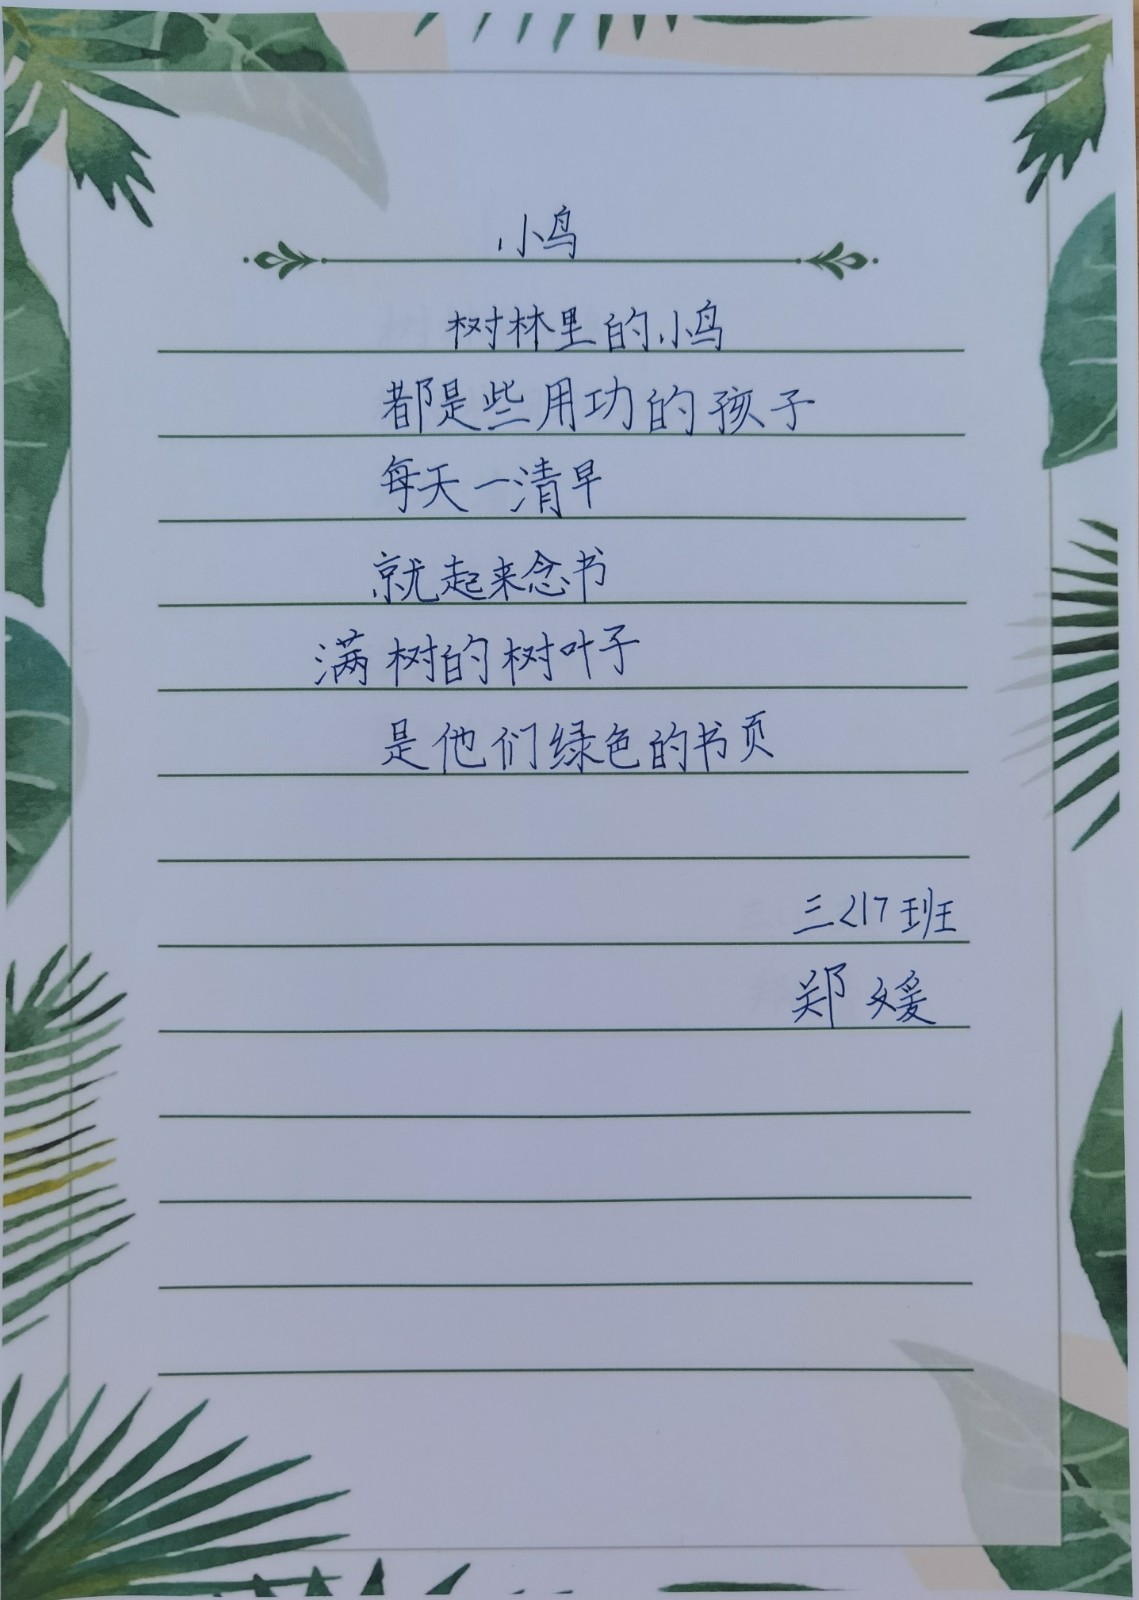 小鸟
树林里的小鸟
都是些用功的孩子
每天一清早
就起来念书
满树的树叶子
是他们绿色的书页
三217班
郑媛